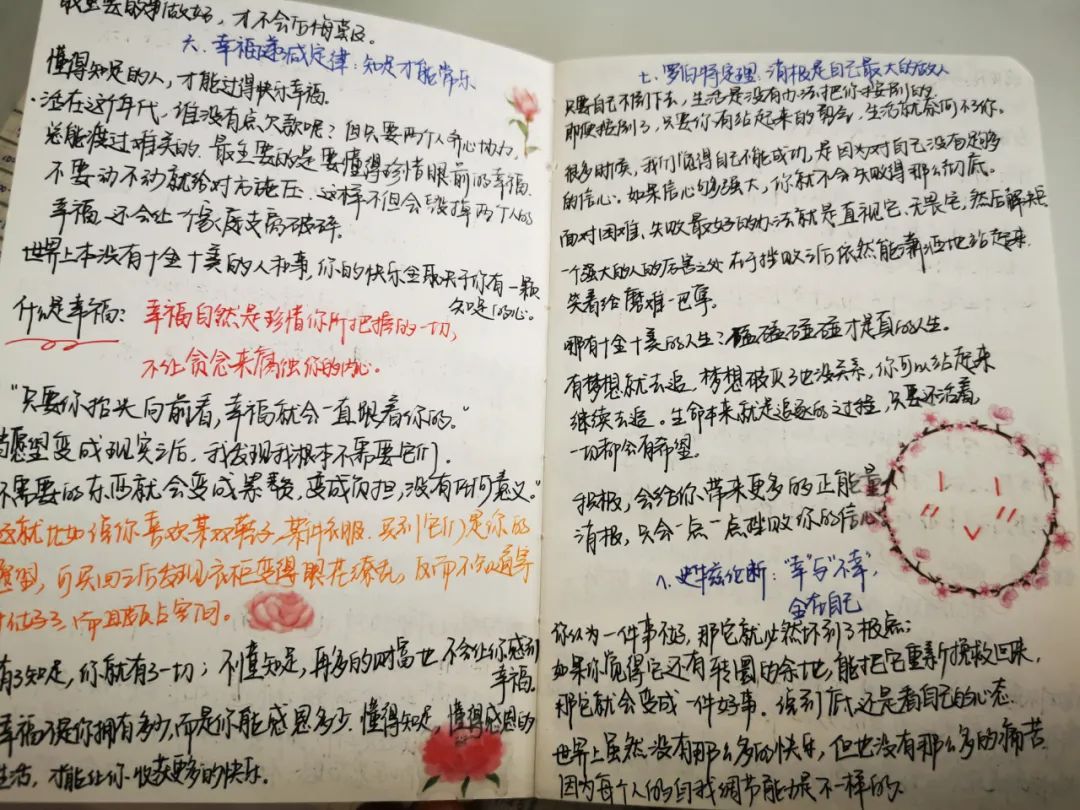 最重要的事做好，才不会后悔莫及。
六、幸福递减定律：知足才能常乐
懂得知足的人，才能过得快乐幸福。
·活在这个年代，谁没有点欠款呢？但只要两个人齐心协力，
总能渡过难关的。最重要的是要懂得珍惜眼前的幸福，
不要动不动就给对方施压，这样不但会毁掉两个人的
幸福，还会让一个家庭支离破碎。
世界上本没有十全十美的人和事，你的快乐全取决于你有一颗
知足的心。
什么是幸福：幸福自然是珍惜你所把握的一切，
不让贪念来腐蚀你的内心。
“只要你抬头向前看，幸福就会一直跟着你的。”
当愿望变成现实之后，我发现我根本不需要它们。
不需要的东西就会变成累赘，变成负担，没有任何意义。”
这就比如说你喜欢某双鞋子，某件衣服，买到它们是你的
愿望，可买回之后发现衣柜变得眼花缭乱，反而不知道穿
什么好了，而且颇占空间。
有了知足，你就有了一切；不懂知足，再多的财富也不会让你感到
幸福。
幸福不是你拥有多少，而是你能感恩多少。懂得知足，懂得感恩的
生活，才能让你收获更多的快乐。
七、罗伯特定理：消极是自己最大的敌人
只要自己不倒下去，生活是没有办法把你打击倒的。
即便摔倒了，只要你有站起来的勇气，生活就奈何不了你。
很多时候，我们觉得自己不能成功，是因为对自己没有足够
的信心。如果信心够强大，你就不会失败得那么彻底。
面对困难、失败最好的办法就是直视它、无畏它，然后解决
一个强大的人的厉害之处在于挫败之后依然能潇洒地站起来，
笑着给磨难一巴掌。
哪有十全十美的人生？磕磕碰碰才是真的人生。
有梦想就去追，梦想破灭了也没关系，你可以站起来
继续去追。生命本来就是追逐的过程，只要还活着，
一切都会有希望。
积极，会给你带来更多的正能量
消极，只会一点一点挫败你的信心
八、史华兹论断：“幸”与“不幸”，
全在自己
你认为一件事不好，那它就必然坏到了极点；
如果你觉得它还有转圜的余地，能把它重新挽救回来，
那它就会变成一件好事。说到底，还是看自己的心态
世界上虽然没有那么多的快乐，但也没有那么多的痛苦
因为每个人的自我调节能力是不一样的。